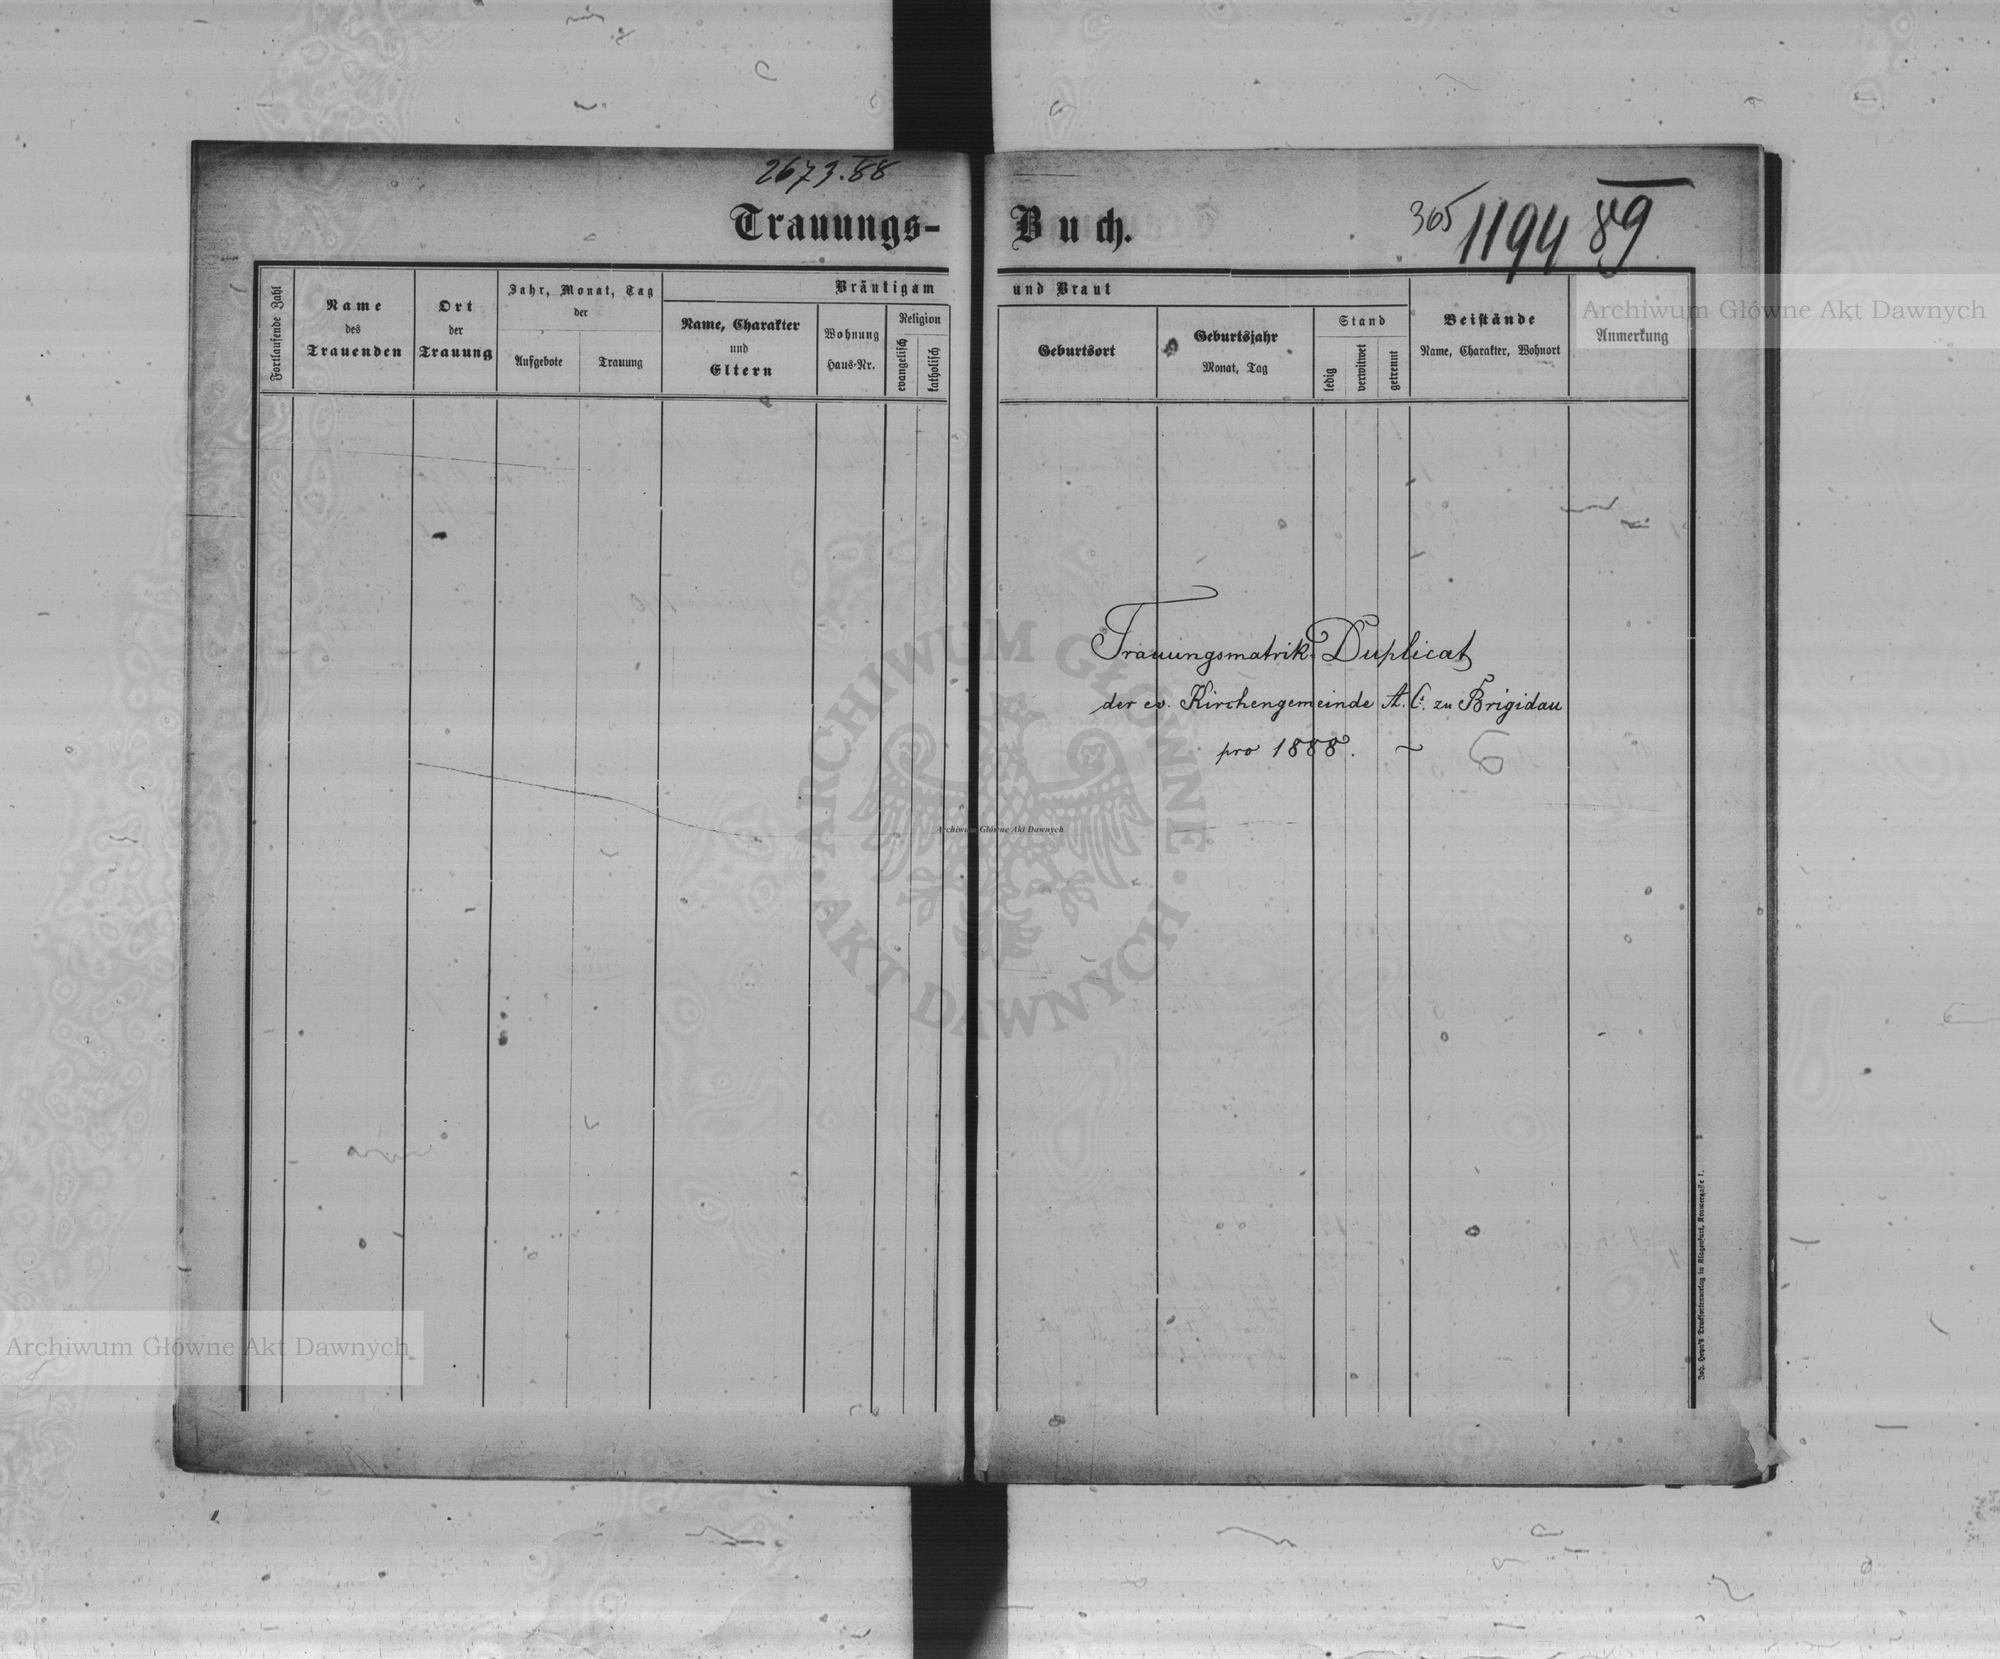 2673.88
Trauungs-Buch.
365 1194 89
Fortlaufende Zahl
Name
des
Trauenden
Ort
der
Trauung
Jahr, Monat, Tag
der
Aufgebote
Trauung
Bräutigam und Braut
Name, Charakter
und
Eltern
Wohnung
Haus-Nr.
Religion
evangelisch
katholisch
Geburtsort
Geburtsjahr
Monat, Tag
Stand
ledig
verwitwet
getrennt
Beistände
Name, Charakter, Wohnort
Anmerkung
Archiwum Główne Akt Dawnych
Trauungsmatrik-Duplicat
der ev. Kirchengemeinde A. C. zu Brigidau
pro 1888. ~
ARCHIWUM GŁÓWNE
AKT DAWNYCH
Archiwum Główne Akt Dawnych
Joh. Heyn's Drucksortenverlag in Klagenfurt,
Archiwum Główne Akt Dawnych